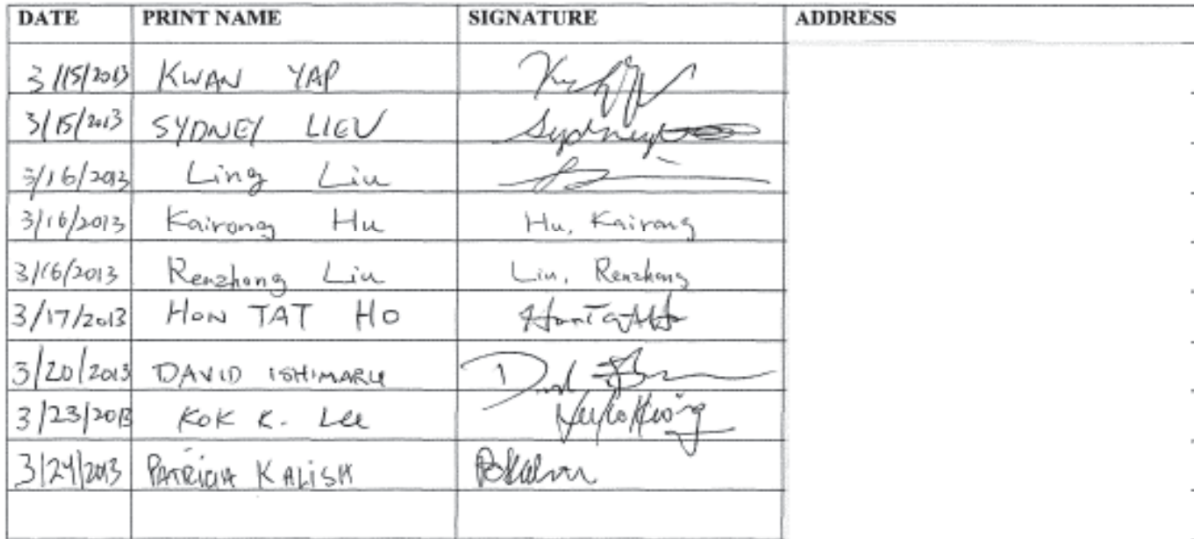 DATE PRINT NAME SIGNATURE ADDRESS
3/15/2013 KWAN YAP
3/15/2013 SYDNEY LIEU Sydney
3/16/2013 Ling Liu
3/16/2013 Kairong Hu Hu, Kairong
3/16/2013 Renzhong Liu Liu, Renzhong
3/17/2013 HON TAT HO Hon Tat Ho
3/20/2013 DAVID ISHIMARU
3/23/2013 KOK K. Lee
3/24/2013 PATRICIA KALISH